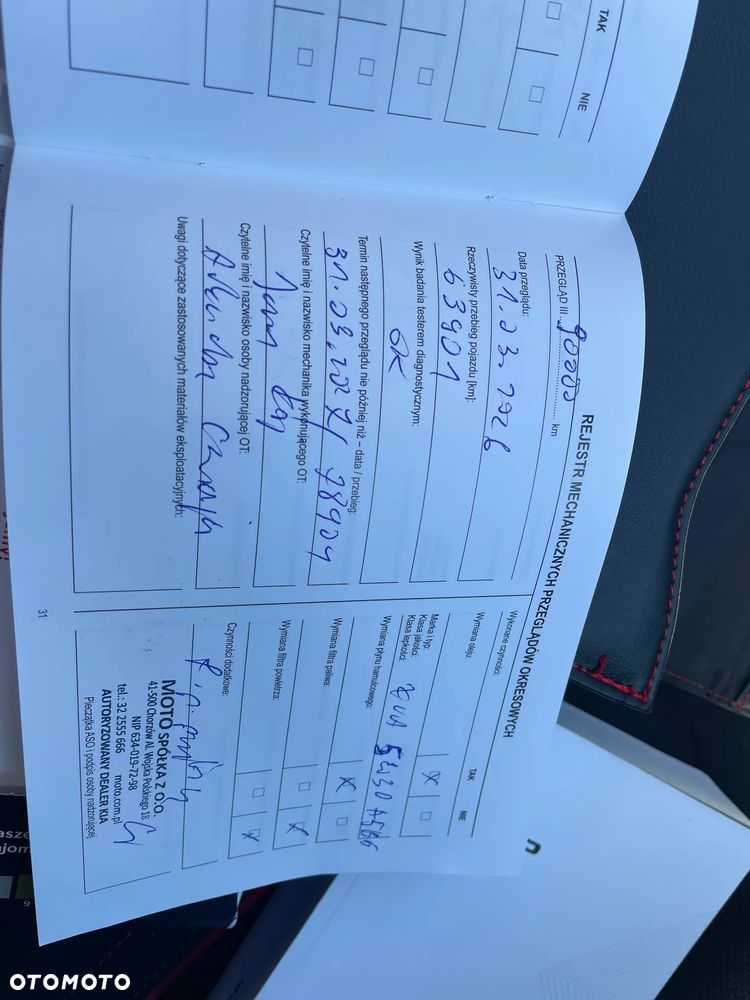 TAK NIE
REJESTR MECHANICZNYCH PRZEGLĄDÓW OKRESOWYCH
PRZEGLĄD III 90000 km
Data przeglądu:
31.03.2026
Rzeczywisty przebieg pojazdu [km]:
63901
Wynik badania testerem diagnostycznym:
OK
Termin następnego przeglądu nie później niż – data / przebieg:
31.03.2027/ 78901
Czytelne imię i nazwisko mechanika wykonującego OT:
Czytelne imię i nazwisko osoby nadzorującej OT:
Uwagi dotyczące zastosowanych materiałów eksploatacyjnych:
Wykonane czynności:
TAK NIE
Wymiana oleju:
Marka i typ:
Klasa jakości:
Klasa lepkości:
5W30
Wymiana płynu hamulcowego:
Wymiana filtra paliwa:
Wymiana filtra powietrza:
Czynności dodatkowe:
MOTO SPÓŁKA Z O.O.
41-500 Chorzów Al. Wojska Polskiego 18
NIP 634-019-72-98
tel.: 32 2555 666 moto.com.pl
AUTORYZOWANY DEALER KIA
Pieczątka ASO i podpis osoby nadzorującej
31
OTOMOTO